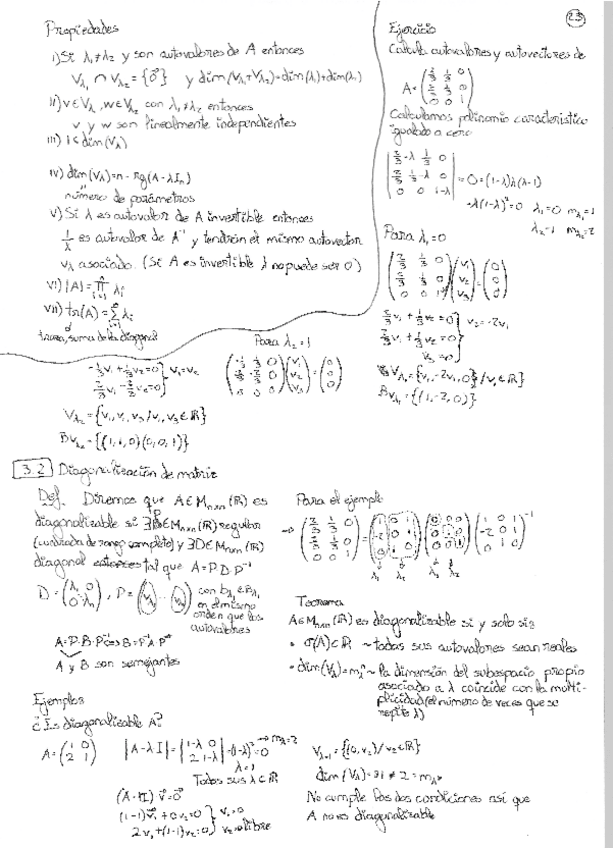 23
Propiedades
i) Si λ₁≠λ₂ y son autovalores de A entonces
V_λ₁ ∩ V_λ₂ = {0⃗} y dim(V_λ₁+V_λ₂)=dim(λ₁)+dim(λ₂)
ii) v∈V_λ₁, w∈V_λ₂ con λ₁≠λ₂ entonces
v y w son linealmente independientes
iii) 1≤dim(V_λ)
iv) dim(V_λ)=n - rg(A-λI_n)
número de parámetros
v) Si λ es autovalor de A invertible entonces
1/λ es autovalor de A⁻¹ y tendrán el mismo autovector
v_λ asociado. (Si A es invertible λ no puede ser 0)
vi) |A|=∏ λᵢ
vii) tr(A)=∑ λᵢ
traza, suma de la diagonal
Ejercicio
Calcula autovalores y autovectores de
A=
Calculamos polinomio característico
igualado a cero
=0=(1-λ)λ(λ-1)
-λ(1-λ)²=0 λ₁=0 m_λ₁=1
λ₂=1 m_λ₂=2
Para λ₁=0
2/3 v₁ + 1/3 v₂ = 0
v₂=-2v₁
v₃=0
V_λ₁={v₁,-2v₁,0}/v₁∈ℝ}
B_Vλ₁={(1,-2,0)}
Para λ₂=1
-1/3 v₁+1/3 v₂=0
2/3 v₁-2/3 v₂=0 } v₁=v₂
V_λ₂={v₁,v₁,v₃/v₁,v₃∈ℝ}
B_Vλ₂={(1,1,0)(0,0,1)}
3.2 Diagonalización de matriz
Def. Diremos que A∈M_nxn(ℝ) es
diagonalizable si ∃P∈M_nxn(ℝ) regular
(cuadrada de rango completo) y ∃D∈M_nxn(ℝ)
diagonal entonces tal que A=P.D.P⁻¹
con
en el mismo
orden que los
autovalores
A y B son semejantes
Para el ejemplo
Teorema
A∈M_nxn(ℝ) es diagonalizable si y solo si:
• σ(A)⊂ℝ ~ todas sus autovalores sean reales
• dim(V_λ)=m_λ ~ la dimensión del subespacio propio
asociado a λ coincide con la multi-
plicidad (el número de veces que se
repite λ)
Ejemplos
¿Es diagonalizable A?
A=(1 0
2 1)
|A-λI|=|1-λ 0
2 1-λ|=(1-λ)²=0 → m_λ=2
λ=1
Todos sus λ∈ℝ
(A-1I)v⃗=0⃗
(1-1)v₁+0v₂=0 } v₁=0
2v₁+(1-1)v₂=0 } v₂=libre
V_λ=1={(0,v₂)/v₂∈ℝ}
dim(V_λ)=1 ≠ 2=m_λ
No cumple las dos condiciones así que
A no es diagonalizable